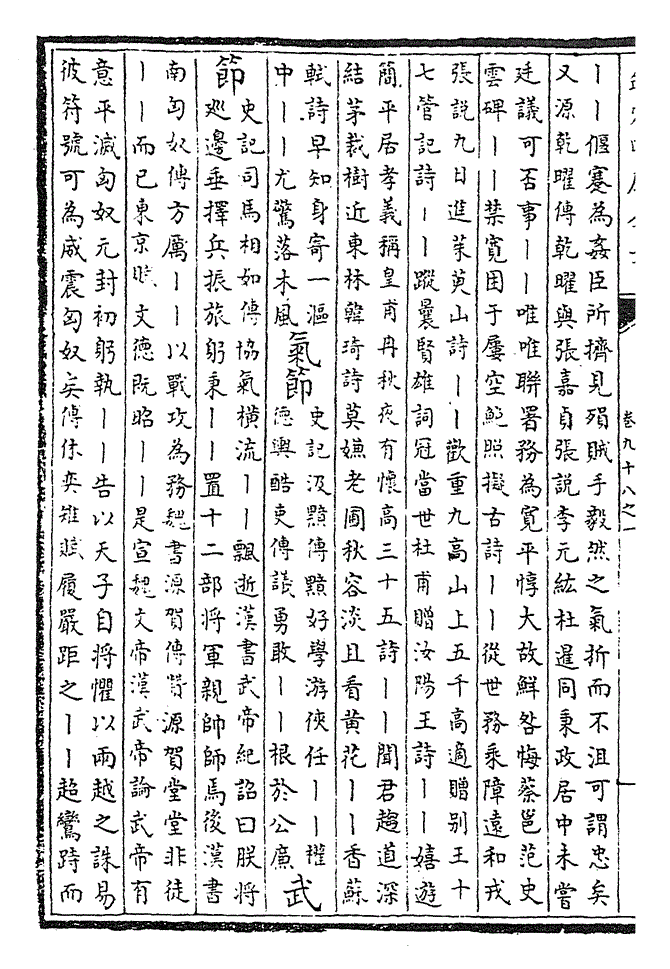 卷九十八之一
丨丨偃蹇為姦臣所擠見殞賊手毅然之氣折而不沮可謂忠矣
又源乾曜傳乾曜與張嘉貞張說李元紘杜暹同秉政居中未嘗
廷議可否事丨丨唯唯聯署務為寬平惇大故鮮咎悔蔡邕范史
雲碑丨丨禁寬困于屢空鮑照擬古詩丨丨從世務乘障遠和戎
張說九日進茱萸山詩丨丨歡重九高山上五千高適贈別王十
七管記詩丨丨蹤曩賢雄詞冠當世杜甫贈汝陽王詩丨丨嬉遊
簡平居孝義稱皇甫冉秋夜有懷高三十五詩丨丨聞君趨道深
結茅栽樹近東林韓琦詩莫嫌老圃秋容淡且看黃花丨丨香蘇
軾詩早知身寄一漚
中丨丨尤驚落木風
氣節
史記汲黯傳黯好學游俠任丨丨權
德輿酷吏傳議勇敢丨丨根於公廉
武
節
史記司馬相如傳協氣橫流丨丨飄逝漢書武帝紀詔曰朕將
巡邊垂擇兵振旅躬秉丨丨置十二部將軍親帥師焉後漢書
南匈奴傳方厲丨丨以戰攻為務魏書源賀傳贊源賀堂堂非徒
丨丨而已東京賦文德既昭丨丨是宣魏文帝漢武帝論武帝有
意平滅匈奴元封初躬執丨丨告以天子自將懼以兩越之誅易
彼符號可為威震匈奴矣傅休奕雉賦履嚴距之丨丨超鸞跱而